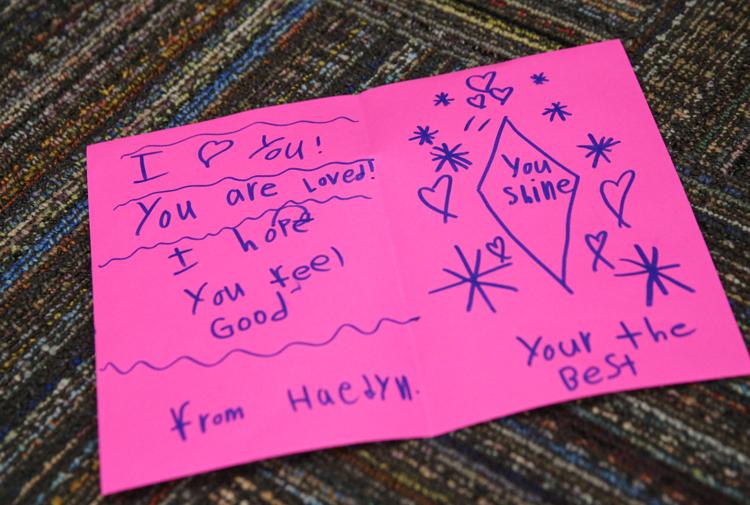 I ♡ You!
You are Loved!
I hope
You feel
Good
from Haedyn.
You
shine
Your the
Best